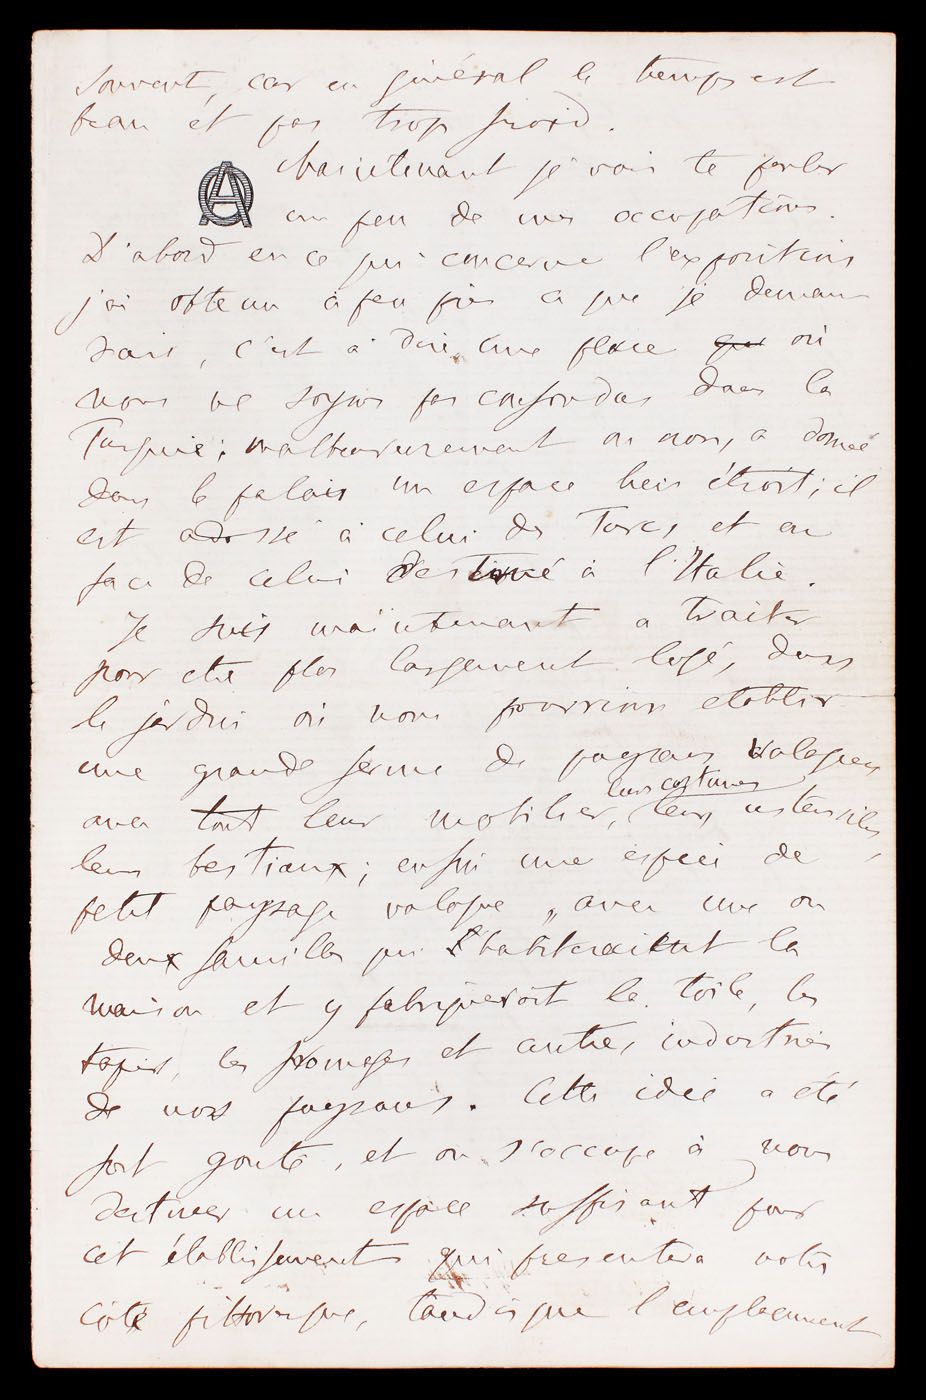 souvent, car en général le temps est
beau et pas trop froid.
Maintenant je vais te parler
un peu de mes occupations.
D'abord en ce qui concerne l'exposition
j'ai obtenu à peu près ce que je deman
dais, c'est à dire, une place que où
nous ne soyons pas confondus dans la
Turquie; malheureusement on nous a donné
dans le palais un espace bien étroit; il
est adossé à celui des Turcs, et en
face de celui destiné à l'Italie.
Je suis maintenant a traiter
pour etre plus largement logé, dans
le jardin où nous pourrions etablir
une grande ferme de paysans valaques
leurs costumes
avec tout leur mobilier, leurs ustensiles,
leurs bestiaux; enfin une espèce de
petit paysage valaque, avec une ou
deux familles qui habiteraient la
maison et y fabriqueroit la toile, les
tapis, les fromages et autres industries
de nos paysans. Cette idée a été
fort gouté, et on s'occupe à nous
destiner un espace suffisant pour
cet établissement qui presentera notre
côté pittoresque, tandis que l'emplacement